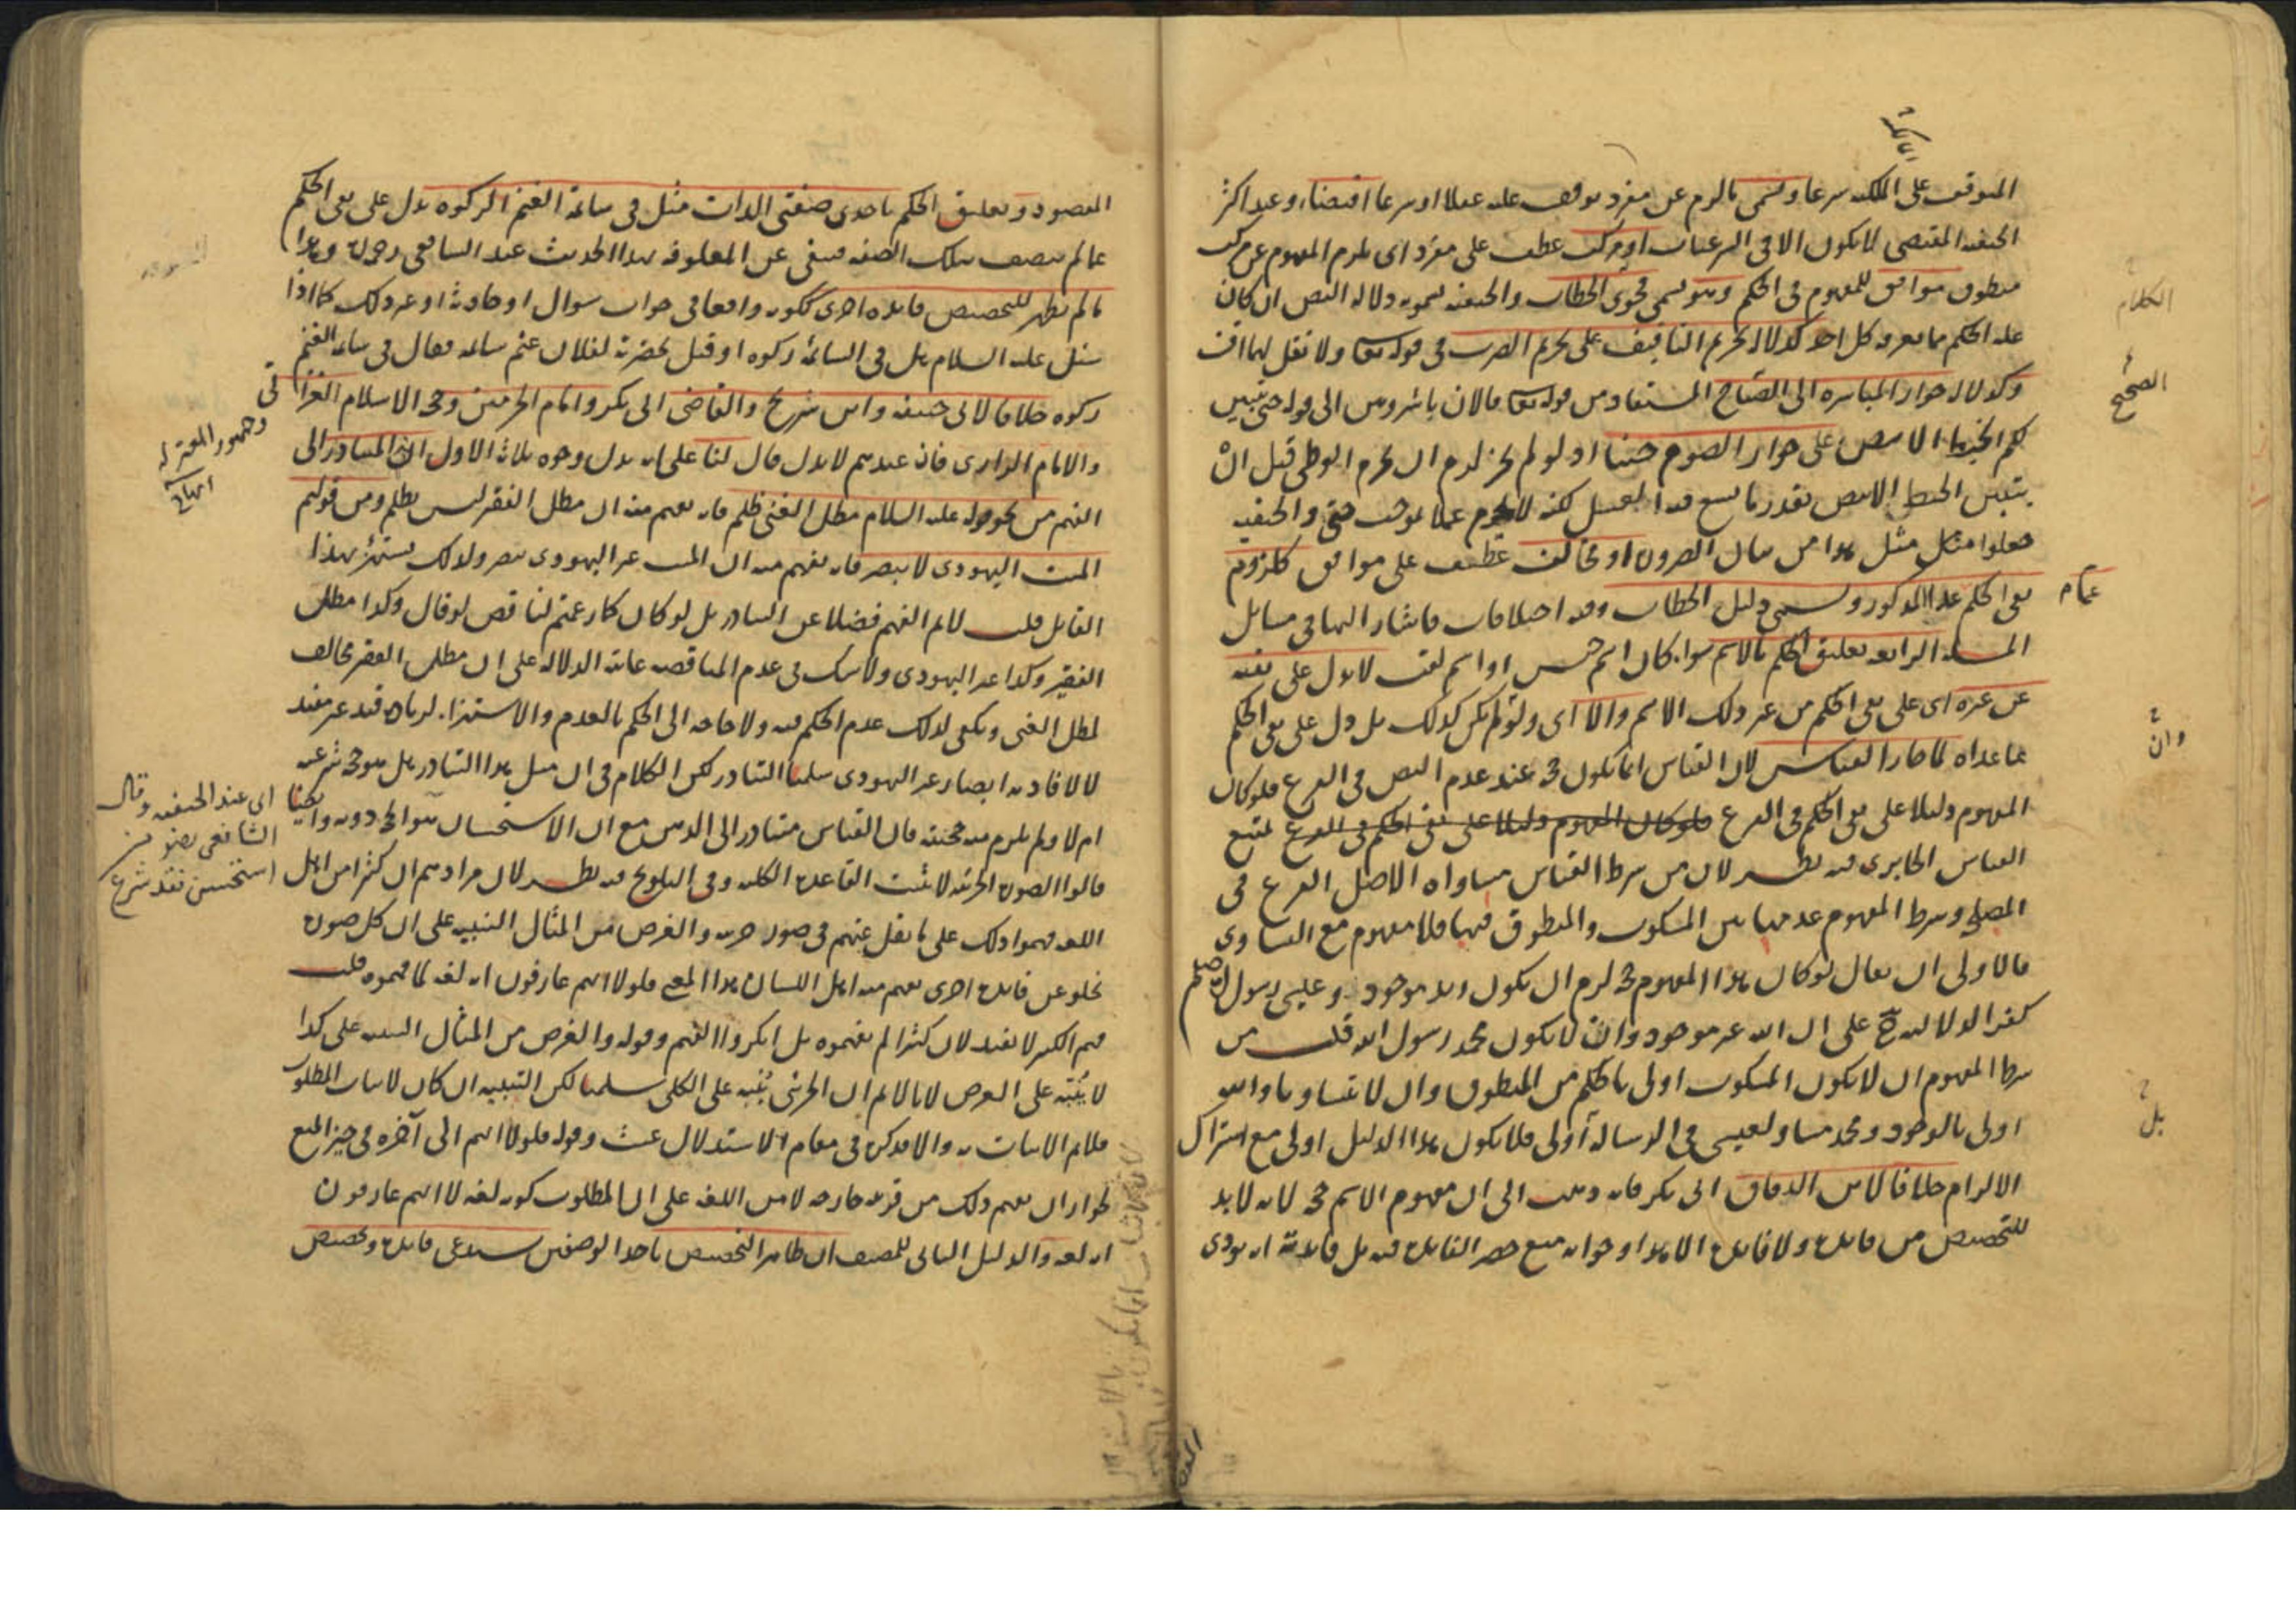 المتوقف على الملك شرعا ويسمى ما لزم عن مفرد يوقف عليه عقلا او شرعا اقتضاء وعند اكثر
الحنفيه المقتضى لا يكون الا في الشرعيات او مركب عطف على مفرد اى يلزم المفهوم عن مركب
منطوق موافق للمفهوم في الحكم وهو يسمى فحوى الخطاب والحنفيه يسمونه دلالة النص ان كان
علة الحكم مما يعرفه كل احد كدلالة تحريم التافيف على تحريم الضرب في قوله تعا ولا تقل لهما اف
وكدلالة جواز المباشره الى الصباح المستفاد من قوله تعا فالان باشروهن الى قوله حتى يتبين
لكم الخيط الابيض على جواز الصوم جنبا اذ لو لم يجز لزم ان يحرم الوطى قبل ان
يتبين الخيط الابيض بقدر ما يسع فيه الغسل لكنه لا يحرم عملا بموجب حتى والحنفيه
جعلوا مثل هذا من بيان الضروره او مخالف عطف على موافق كلزوم
نفى الحكم عما عدا المذكور ويسمى دليل الخطاب وفيه اختلافات فاشار اليها في مسايل
المسئله الرابعه تعليق الحكم بالاسم سواء كان اسم جنس او اسم لقب لا يدل على نفيه
عن غيره اى على نفى الحكم من غير ذلك الاسم والا اى ولو لم يكن كذلك بل دل على نفى الحكم
عما عداه لما جاز القياس لان القياس انما يكون حجة عند عدم النص في الفرع فلو كان
المفهوم دليلا على نفى الحكم في الفرع فلو كان المفهوم دليلا على نفى الحكم في الفرع لمتنع
القياس الجابردى فيه نظر لان من شرط القياس مساواة الاصل الفرع في
المصلحة وشرط المفهوم عدمها بين المسكوت والمنطوق فيها فلا مفهوم مع التساوى
فالاولى ان يقال لو كان هذا المفهوم حجة لزم ان يكون زيد موجود وعيسى رسول الله صلعم
كفرا لدلالته ح على ان الله غير موجود وان لا يكون محمد رسول الله قلت من
شرط المفهوم ان لا يكون المسكوت اولى بالحكم من المنطوق وان لا يتساويا والله
اولى بالوجود ومحمد مساو لعيسى في الرسالة او اولى فلا يكون هذا الدليل اولى مع اشتراك
الالزام خلافا لابن الدقاق ابى بكر فانه ذهب الى ان مفهوم الاسم حجة لانه لابد
للتخصيص من فايدة ولا فايدة الا هذا وجوابه منع حصر الفايدة فيه بل فايدته ان يودى
الكلام
الصحيح
عام
وان
بل
المقصود وتعليق الحكم باحدى صفتى الذات مثل في سائمة الغنم الزكوه يدل على نفى الحكم
عما لم يتصف بتلك الصفه فينفى عن المعلوفه بهذا الحديث عند الشافعى رحمه الله وهذا
ما لم يظهر للتخصيص فايده اخرى ككونه واقعا في جواب سوال او حادثة او غير ذلك كما اذا
سئل عليه السلام هل في السائمة زكوه او قيل بحضرته لفلان غنم سائمه فقال في سائمه الغنم
زكوه خلافا لابى حنيفه وابن شريح والقاضى ابى بكر وامام الحرمين وحجة الاسلام الغزالى
والامام الرازى فان عندهم لا يدل قال لنا على انه يدل وجوه ثلاثة الاول انه المتبادر الى
الفهم من نحو قوله عليه السلام مطل الغنى ظلم فانه يفهم منه ان مطل الفقير ليس بظلم ومن قولهم
الميت اليهودى لا يبصر فانه يفهم منه ان الميت غير اليهودى يبصر ولذلك يستهزئ بهذا
القايل قلت لا نم الفهم فضلا عن التبادر بل لو كان كما زعمتم لناقض لو قال وكذا مطل
الفقير وكذا غير اليهودى ولا شك في عدم المناقضه غايته الدلالة على ان مطل الفقير مخالف
لمطل الغنى ويكفى لذلك عدم الحكم فيه ولا حاجه الى الحكم بالعدم والاستهزاء لزيادة قيد غير مفيد
لا لافادته ابصار غير اليهودى سلمنا التبادر لكن الكلام في ان مثل هذا التبادر هل هو حجة شرعيه
ام لا ولم يلزم منه حجيته فان القياس متبادر الى الذهن مع ان الاستحسان هو الحجه دونه وايضا
قالوا الصوره الجزئيه لا تثبت القاعدة الكليه وفي التلويح فيه نظر لان مرادهم ان كثيرا من اهل
اللغه فهموا ذلك على ما نقل عنهم في صور جزئيه والغرض من المثال التنبيه على ان كل صوره
تخلو عن فايدة اخرى يفهم منه اهل اللسان هذا المعنى فلولا انهم عارفون انه لغه لما فهموه قلت
فهم الكثير لا يفيد لان كثيرا لم يفهموه بل انكروا الفهم وقوله والغرض من المثال التنبيه على كذا
لا يُنبّه على الغرض لانا لا نم ان الجزئى يُنبه على الكلى سلمنا لكن التنبيه ان كان لاثبات المطلوب
فلا نم الاثبات به والا فذكره في مقام الاستدلال عبث وقوله فلولا انهم الى آخره في حيز المنع
لجواز ان يفهم ذلك من قرينه خارجه لا من اللغه على ان المطلوب كونه لغه لا انهم عارفون
انه لغه والدليل الثانى للمصنف ان ظاهر التخصيص باحد الوصفين يستدعى فايدة وتخصيص
وجمهور المعتزله
اى عند الحنفيه وقال
الشافعى رضى من
استحسن فقد شرع